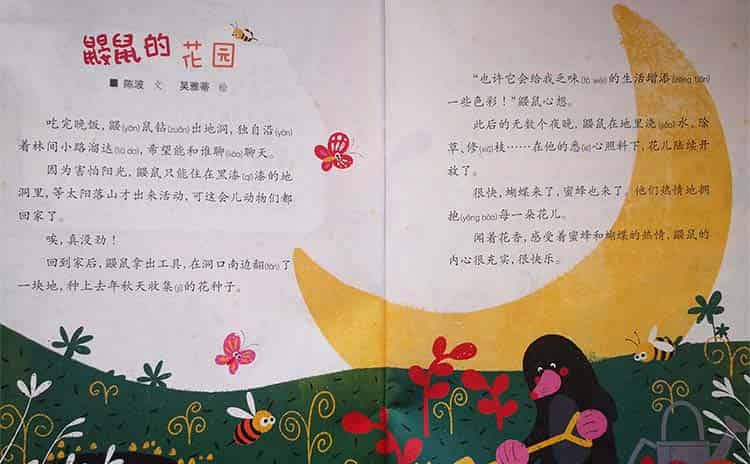 鼹鼠的花园
■ 陈波 文 吴雅蒂 绘
吃完晚饭，鼹(yǎn)鼠钻(zuān)出地洞，独自沿(yán)
着林间小路溜达(liū da)，希望能和谁聊(liáo)聊天。
因为害怕阳光，鼹鼠只能住在黑漆(qī)漆的地
洞里，等太阳落山才出来活动，可这会儿动物们都
回家了。
唉，真没劲！
回到家后，鼹鼠拿出工具，在洞口南边翻(fān)了
一块地，种上去年秋天收集(jí)的花种子。
“也许它会给我乏味(fá wèi)的生活增添(zēng tiān)
一些色彩！”鼹鼠心想。
此后的无数个夜晚，鼹鼠在地里浇(jiāo)水、除
草、修(xiū)枝……在他的悉(xī)心照料下，花儿陆续开
放了。
很快，蝴蝶来了，蜜蜂也来了。他们热情地拥
抱(yōng bào)每一朵花儿。
闻着花香，感受着蜜蜂和蝴蝶的热情，鼹鼠的
内心很充实，很快乐。